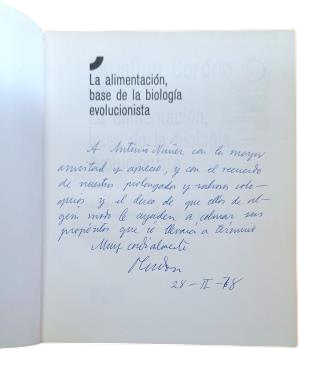 La alimentación,
base de la biología
evolucionista
A Antonio Núñez con la mayor
amistad y aprecio, y con el recuerdo
de nuestros prolongados y sabrosos colo-
quios y el deseo de que ellos de al-
gún modo le ayuden a colmar sus
propósitos que sé llevará a término
Muy cordialmente
28-II-78